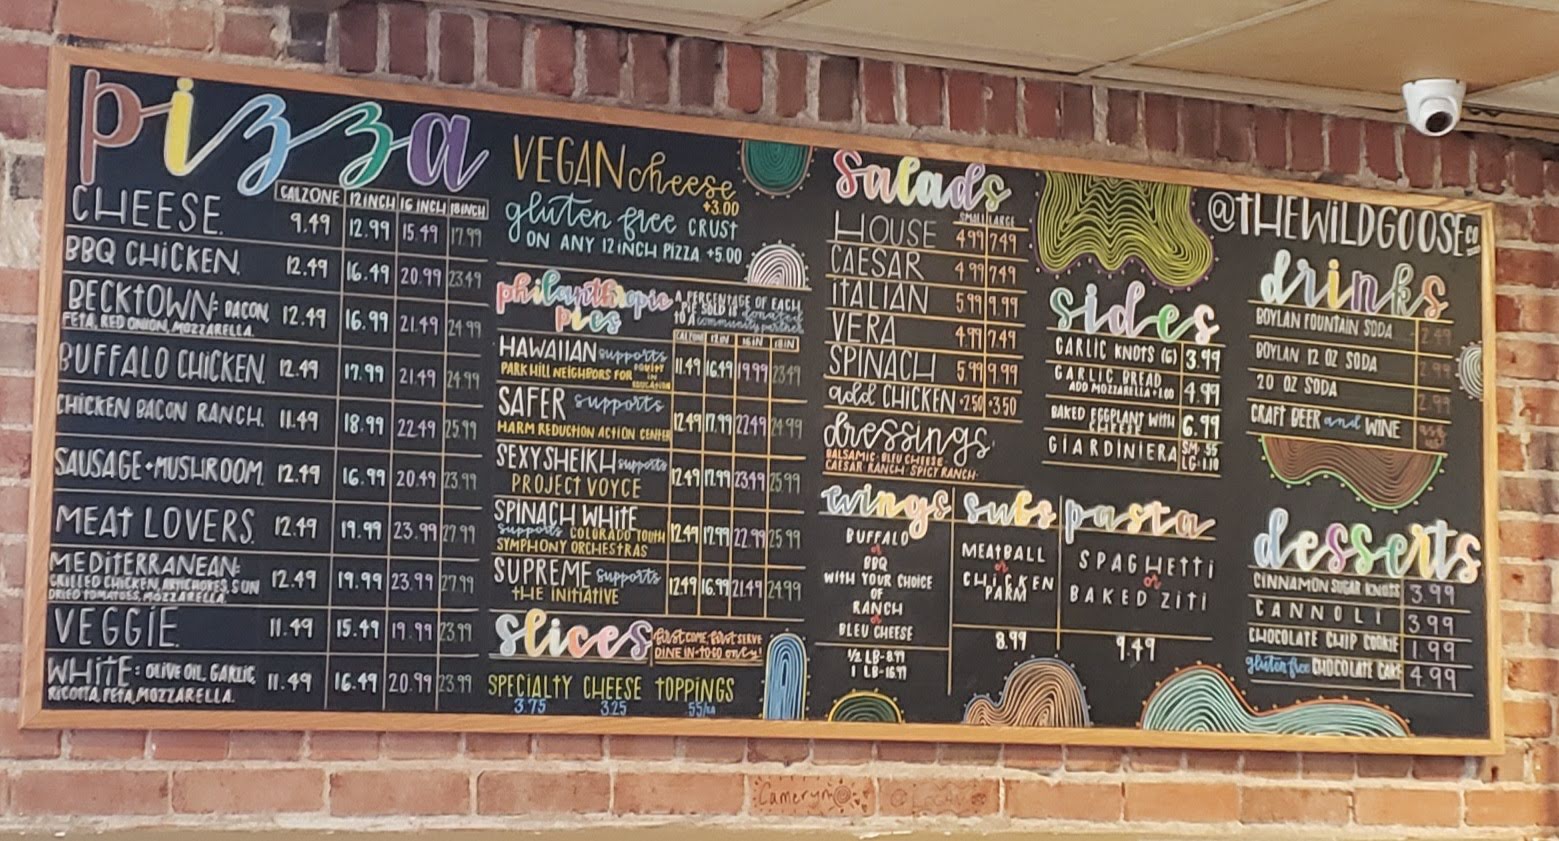 pizza
CALZONE 12 INCH 16 INCH 18 INCH
CHEESE 9.49 12.99 15.49 17.99
BBQ CHICKEN 12.49 16.49 20.99 23.49
BECKTOWN: BACON, 12.49 16.99 21.49 24.99
FETA, RED ONION, MOZZARELLA.
BUFFALO CHICKEN 12.49 17.99 21.49 24.99
CHICKEN BACON RANCH. 11.49 18.99 22.49 25.99
SAUSAGE + MUSHROOM 12.49 16.99 20.49 23.99
MEAT LOVERS 12.49 19.99 23.99 27.99
MEDITERRANEAN: 12.49 19.99 23.99 27.99
GRILLED CHICKEN, ARTICHOKES, SUN
DRIED TOMATOES, MOZZARELLA.
VEGGIE 11.49 15.49 19.99 23.99
WHITE: OLIVE OIL, GARLIC, 11.49 16.49 20.99 23.99
RICOTTA, FETA, MOZZARELLA.
VEGAN cheese
+3.00
gluten free CRUST
ON ANY 12 INCH PIZZA +5.00
philanthropic
pies
A PERCENTAGE OF EACH
PIE SOLD IS donated
TO A community partner
CALZONE 12 IN 16 IN 18 IN
HAWAIIAN supports 11.49 16.49 19.99 23.49
PARK HILL NEIGHBORS FOR EQUITY
IN
EDUCATION
SAFER supports 12.49 17.99 22.49 24.99
HARM REDUCTION ACTION CENTER
SEXY SHEIKH supports 12.49 17.99 23.49 25.99
PROJECT VOYCE
SPINACH WHITE 12.49 17.99 22.99 25.99
supports COLORADO YOUTH
SYMPHONY ORCHESTRAS
SUPREME supports 12.49 16.99 21.49 24.99
THE INITIATIVE
slices
first COME, first SERVE
DINE IN-TO GO only!
SPECIALTY CHEESE TOPPINGS
3.75 3.25 .55/EA
Salads
SMALL LARGE
HOUSE 4.99 7.49
CAESAR 4.99 7.49
ITALIAN 5.99 9.99
VERA 4.99 7.49
SPINACH 5.99 9.99
add CHICKEN +2.50 +3.50
dressings
BALSAMIC BLEU CHEESE
CAESAR RANCH SPICY RANCH
wings
BUFFALO
or
BBQ
WITH YOUR CHOICE
OF
RANCH
or
BLEU CHEESE
1/2 LB-8.99
1 LB-16.99
subs
MEATBALL
or
CHICKEN
PARM
8.99
pasta
SPAGHETTI
or
BAKED ZITI
9.49
sides
GARLIC KNOTS (6) 3.99
GARLIC BREAD 4.99
ADD MOZZARELLA +1.00
BAKED EGGPLANT WITH 6.99
CHEESE
GIARDINIERA SM .55
LG 1.10
@THEWILDGOOSECO
drinks
BOYLAN FOUNTAIN SODA 2.49
BOYLAN 12 OZ SODA 2.99
20 OZ SODA 2.99
CRAFT BEER and WINE
desserts
CINNAMON SUGAR KNOTS 3.99
CANNOLI 3.99
CHOCOLATE CHIP COOKIE 1.99
gluten free CHOCOLATE CAKE 4.99